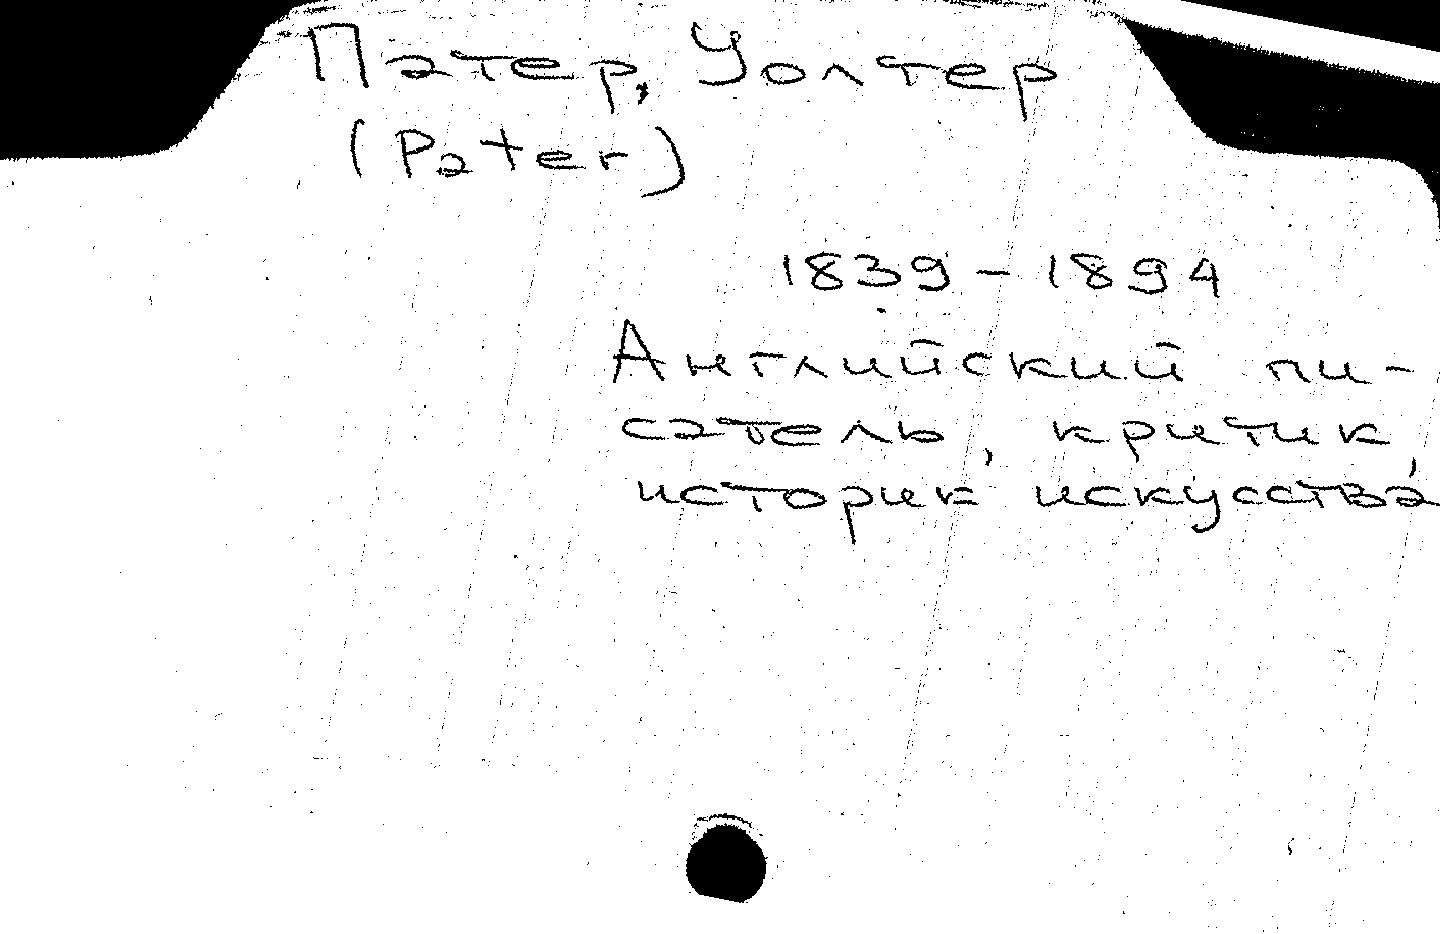 Патер, Уолтер
(Pater)
1839-1894
Английский пи-
сатель, критик,
историк искусства